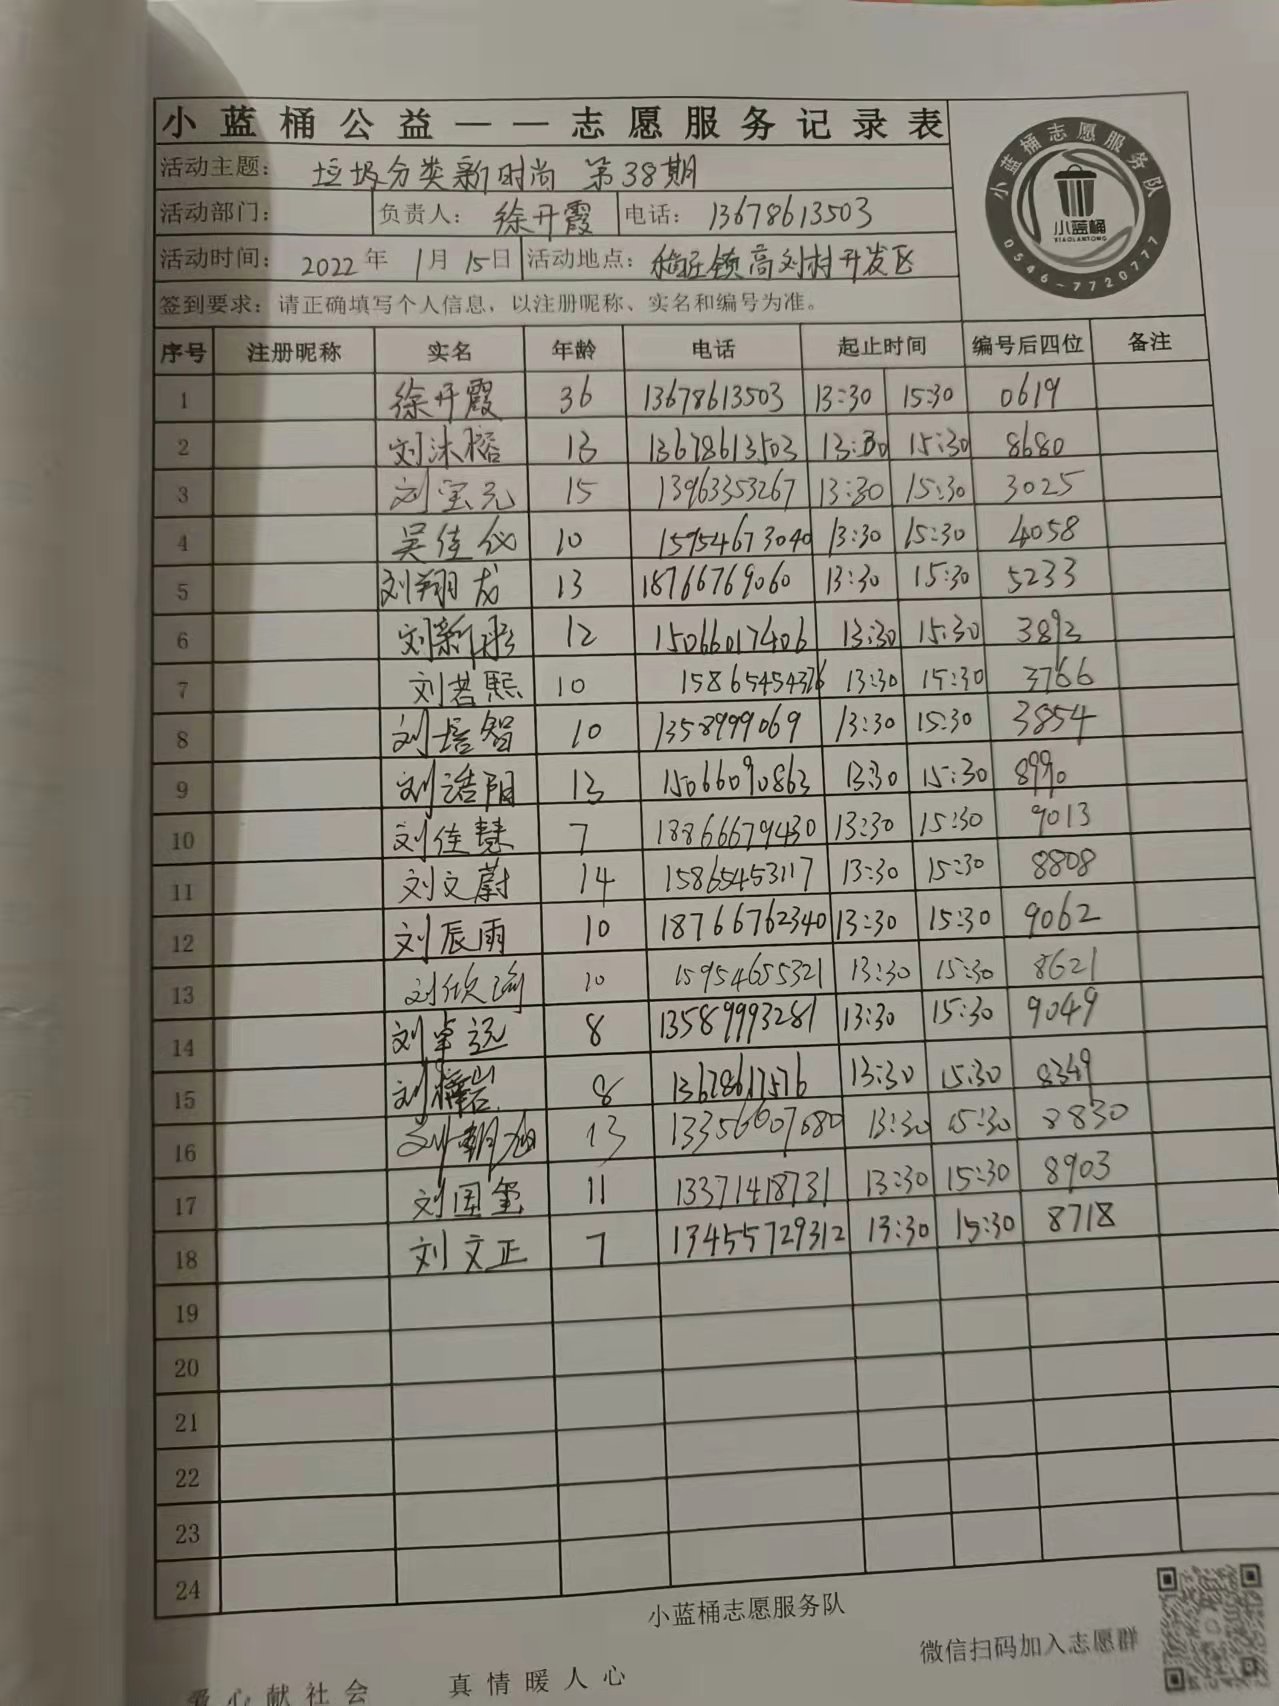 小蓝桶公益——志愿服务记录表
活动主题： 垃圾分类新时尚 第38期
活动部门： 负责人： 徐开霞 电话： 13678613503
活动时间： 2022年 1月 15日 活动地点： 高刘村开发区
签到要求：请正确填写个人信息，以注册昵称、实名和编号为准。
小蓝桶志愿服务队
小蓝桶
XIAOLANTONG
0546-7720777
序号 注册昵称 实名 年龄 电话 起止时间 编号后四位 备注
1 徐开霞 36 13678613503 13:30 15:30 0619
2 刘沐榕 13 13678613503 13:30 15:30 8680
3 刘宝元 15 13963353267 13:30 15:30 3025
4 吴佳仪 10 15954673040 13:30 15:30 4058
5 刘翔龙 13 18766769060 13:30 15:30 5233
6 刘新彤 12 15066017406 13:30 15:30 3892
7 刘若熙 10 15865454376 13:30 15:30 3766
8 刘培智 10 1358999069 13:30 15:30 3854
9 刘浩阳 13 15066090863 13:30 15:30 8990
10 刘佳慧 7 18866679430 13:30 15:30 9013
11 刘文蔚 14 15865453117 13:30 15:30 8808
12 刘辰雨 10 18766762340 13:30 15:30 9062
13 刘欣 10 15954655321 13:30 15:30 8621
14 刘卓远 8 13589993281 13:30 15:30 9049
15 刘 8 13678617576 13:30 15:30 8349
16 刘朝旭 13 13356607680 13:30 15:30 8830
17 刘国玺 11 13371418731 13:30 15:30 8903
18 刘文正 7 13455729312 13:30 15:30 8718
19
20
21
22
23
24
小蓝桶志愿服务队
微信扫码加入志愿群
爱心献社会 真情暖人心